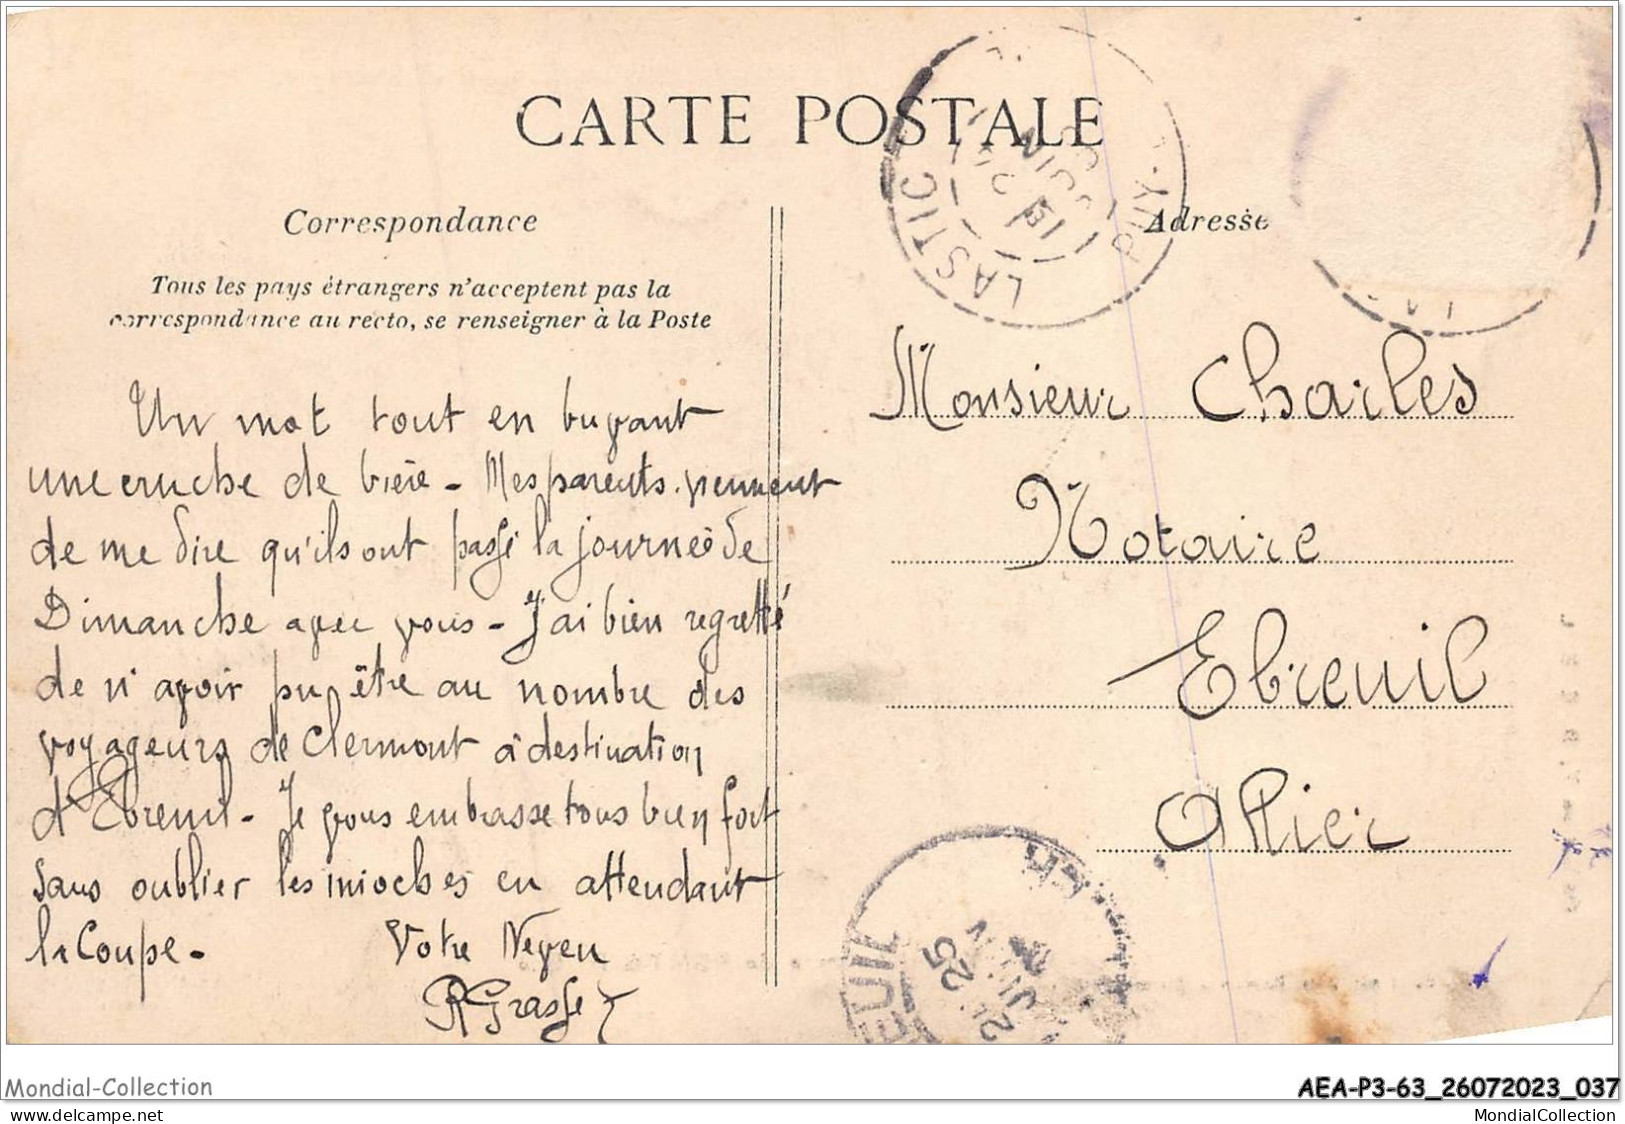 CARTE POSTALE
Correspondance
Tous les pays étrangers n'acceptent pas la
correspondance au recto, se renseigner à la Poste
Adresse
LASTIC
PUY-
JUIN
Un mot tout en buvant
une cruche de bière - Mes parents viennent
de me dire qu'ils ont passé la journée de
Dimanche avec vous - J'ai bien regretté
de n'avoir pu être au nombre des
voyageurs de Clermont à destination
d'Ebreuil - Je vous embrasse tous bien fort
sans oublier les mioches en attendant
la Coupe -
Votre Neveu
R Grasse
Monsieur Charles
Notaire
Ebreuil
Allier
EUIL
25
JUIN
Mondial-Collection
AEA-P3-63_26072023_037
www.delcampe.net
MondialCollection